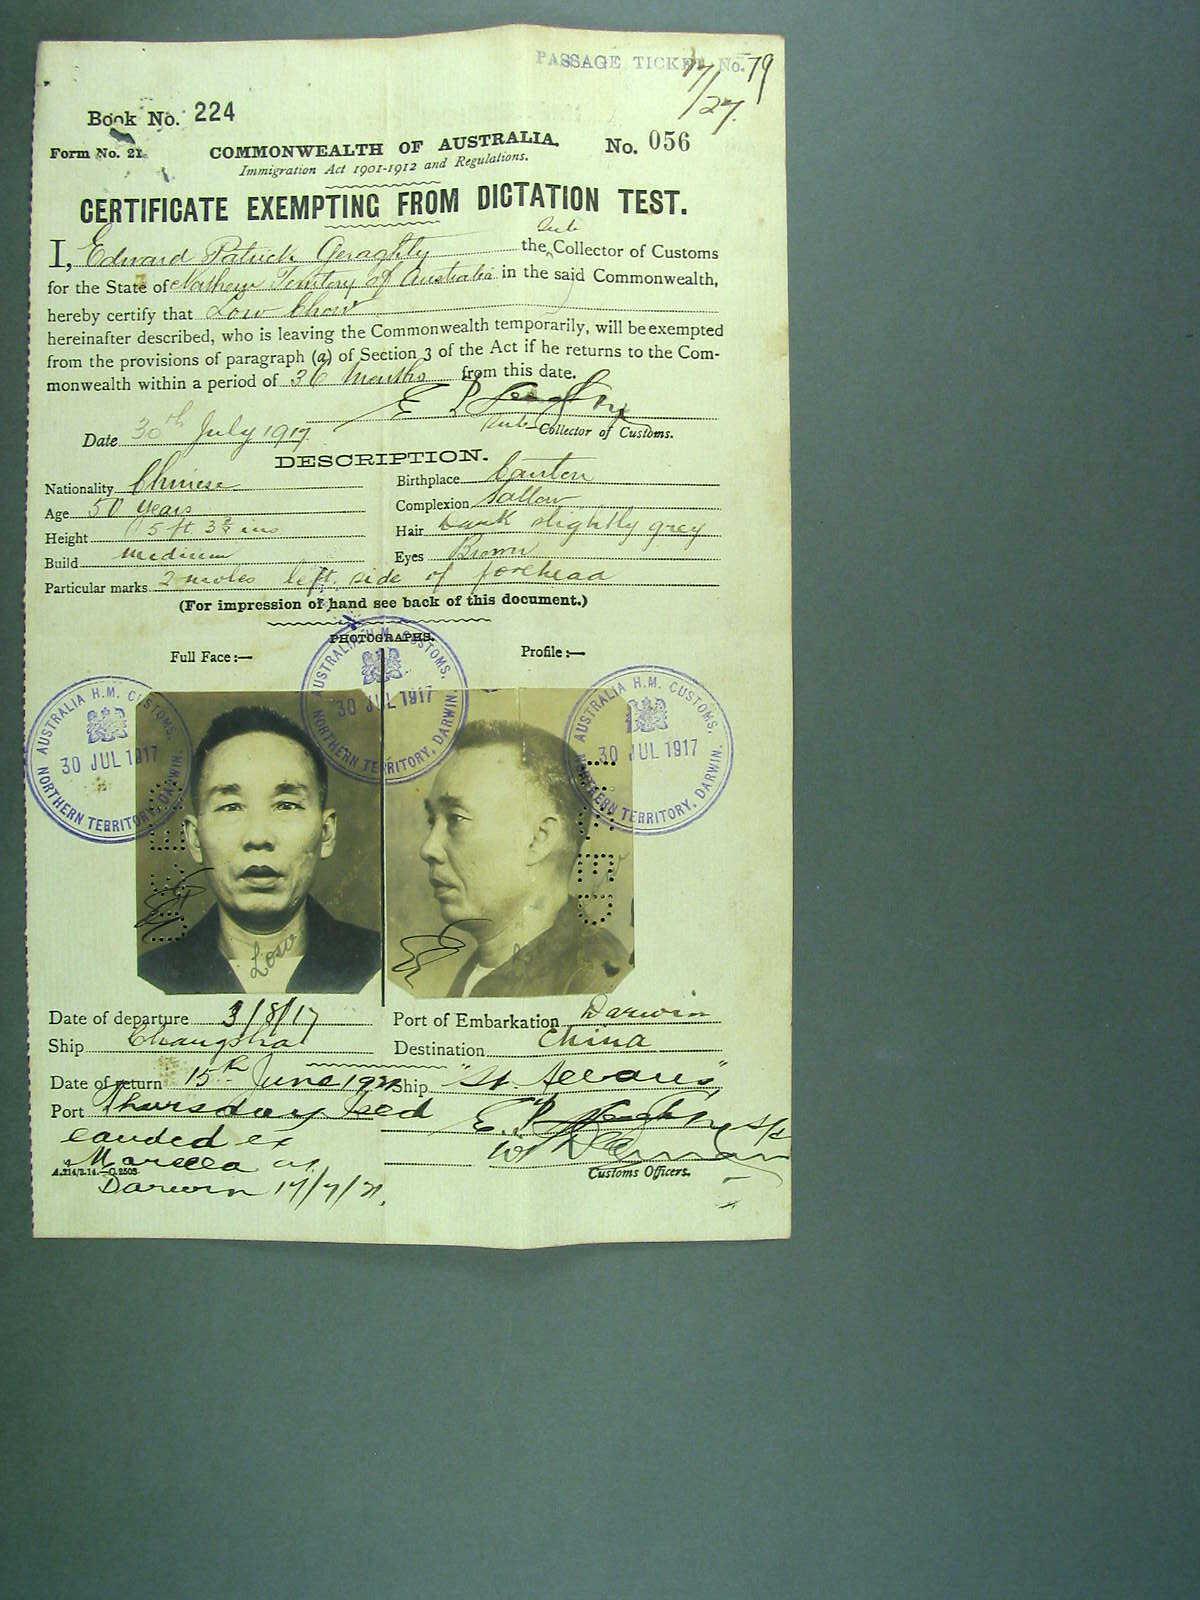 PASSAGE TICKET No. 79
17/27.
Book No. 224
Form No. 21.
COMMONWEALTH OF AUSTRALIA.
No. 056
Immigration Act 1901-1912 and Regulations.
CERTIFICATE EXEMPTING FROM DICTATION TEST.
I, Edward Patrick Geraghty the Sub Collector of Customs
for the State of Northern Territory of Australia in the said Commonwealth,
hereby certify that Low Chow
hereinafter described, who is leaving the Commonwealth temporarily, will be exempted
from the provisions of paragraph (a) of Section 3 of the Act if he returns to the Com-
monwealth within a period of 36 Months from this date.
Date 30th July 1917
Sub-Collector of Customs.
DESCRIPTION.
Nationality Chinese
Birthplace Canton
Age 50 years
Complexion Sallow
Height 5 ft 3 ins
Hair dark slightly grey
Build medium
Eyes Brown
Particular marks 2 moles left side of forehead
(For impression of hand see back of this document.)
PHOTOGRAPHS.
Full Face:—
Profile:—
AUSTRALIA H.M. CUSTOMS,
30 JUL 1917
NORTHERN TERRITORY, DARWIN.
AUSTRALIA H.M. CUSTOMS,
30 JUL 1917
NORTHERN TERRITORY, DARWIN.
AUSTRALIA H.M. CUSTOMS,
30 JUL 1917
NORTHERN TERRITORY, DARWIN.
Date of departure 3/8/17
Port of Embarkation Darwin
Ship Changsha
Destination China
Date of return 15th June 1921
Ship "St. Albans"
Port Thursday Isld
landed ex
Darwin 17/7/21.
A.214/3.14.—C.2503
Customs Officers.